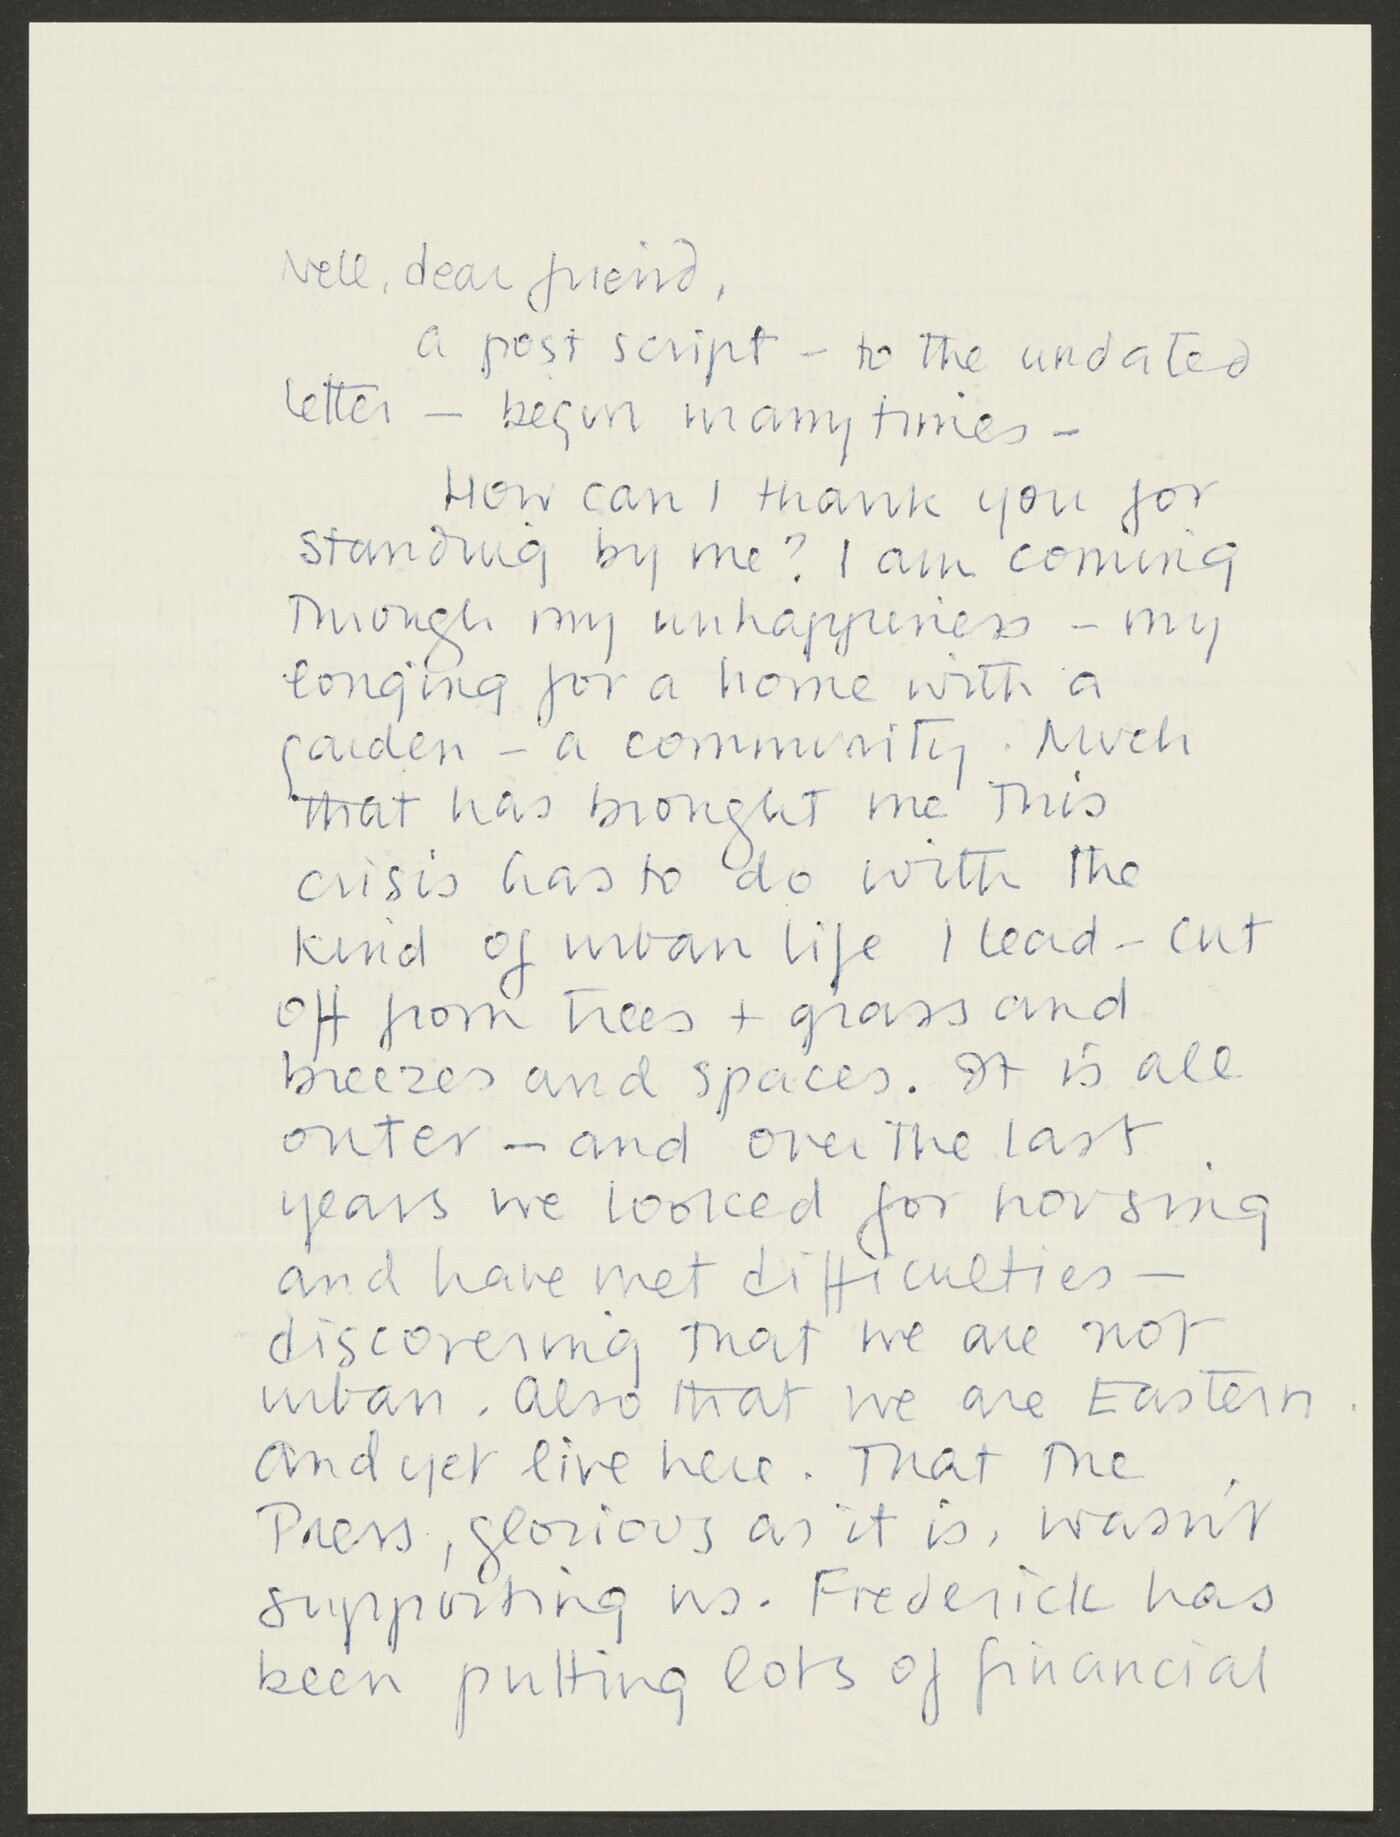 Nell, dear friend,
a post script - to the undated
letter — begun many times -
How can I thank you for
standing by me? I am coming
through my unhappiness - my
longing for a home with a
garden - a community. Much
that has brought me this
crisis has to do with the
kind of urban life I lead - cut
off from trees + grass and
breezes and spaces. It is all
outer — and over the last
years we looked for housing
and have met difficulties —
discovering that we are not
urban. Also that we are Eastern.
And yet live here. That the
Press, glorious as it is, wasn't
supporting us. Frederick has
been putting lots of financial